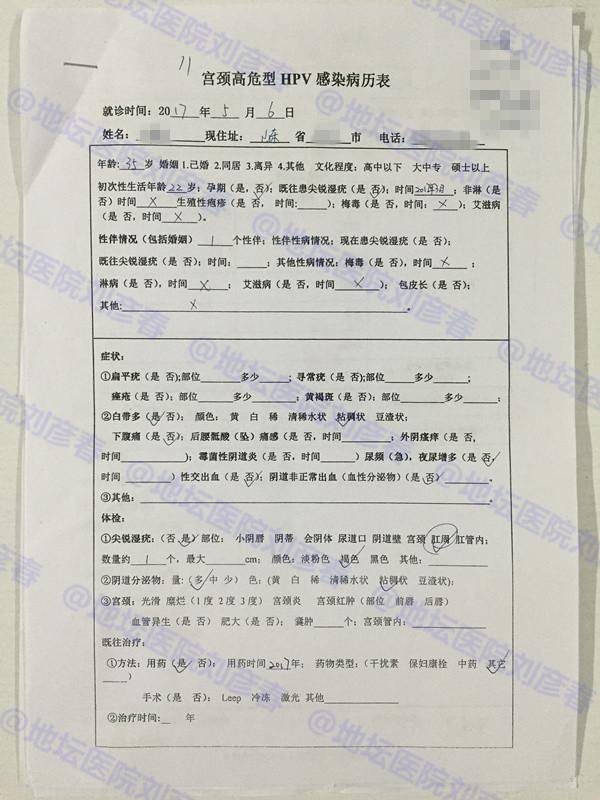 11
宫颈高危型 HPV 感染病历表
就诊时间：2017 年 5 月 6 日
姓名： 现住址： 省 市 电话：
年龄:35 岁 婚姻 1.已婚 2.同居 3.离异 4.其他 文化程度：高中以下 大中专 硕士以上
初次性生活年龄22岁；孕期（是，否）；既往患尖锐湿疣（是 否）；时间2017年3月；非淋（是
否）时间 X 生殖性疱疹（是 否， 时间:_____)；梅毒（是 否，时间： X ）；艾滋病
（是 否，时间 X ）。
性伴情况（包括婚姻） 1 个性伴；性伴性病情况：现在患尖锐湿疣（是 否）；
既往尖锐湿疣（是 否）；时间：_____；其他性病情况：梅毒（是 否），时间 X ；
淋病（是 否），时间 X ； 艾滋病（是 否，时间 X ）； 包皮长（是 否）；
其他: X 。
症状：
①扁平疣（是 否);部位______多少_____；寻常疣（是 否);部位______多少_____；
痤疮（是 否）；部位______多少_____； 黄褐斑（是 否）；部位______多少_____；
②白带多（是 否）； 颜色： 黄 白 稀 清稀水状 粘稠状 豆渣状；
下腹痛（是 否）；后腰骶酸（坠）痛感（是 否，时间________）；外阴瘙痒（是 否，
时间________）；霉菌性阴道炎（是 否，时间_____）尿频（急），夜尿增多（是 否，
时间 ________）性交出血（是 否）；阴道非正常出血（血性分泌物）（是 否）。
③其他：________
体检：
①尖锐湿疣：（否 是）部位： 小阴唇 阴蒂 会阴体 尿道口 阴道壁 宫颈 肛周 肛管内；
数量约 1 个，最大______cm； 颜色：淡粉色 褐色 黑色 其他：________
②阴道分泌物：量：（多 中 少） 色：（黄 白 稀 清稀水状 粘稠状 豆渣状）；
③宫颈：光滑 糜烂（1度 2度 3度） 宫颈炎 宫颈红肿（部位 前唇 后唇）
血管异生（是 否） 肥大（是 否）； 囊肿_____个；宫颈管内：________
既往治疗：
①方法：用药（是 否）； 用药时间 2017年； 药物类型：（干扰素 保妇康栓 中药 其它
_____）
手术（是 否）： Leep 冷冻 激光 其他________
②治疗时间：__ 年
@地坛医院刘彦春